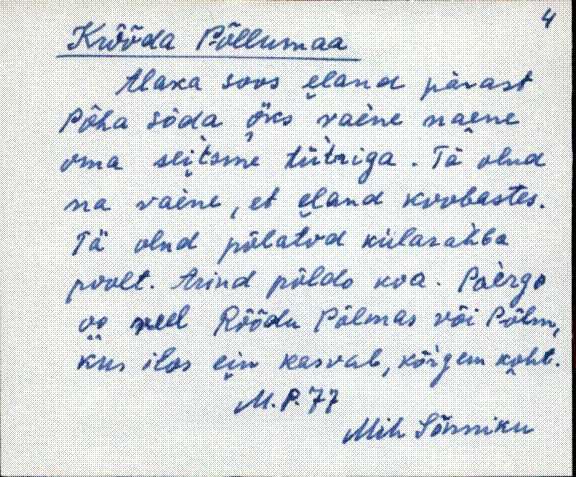 4
Krõõda Põllumaa
Alaka soos eland pärast
Põha sõda õks vaène naene
oma seitsme tütriga. Tä olnd
na vaène, et eland koobastes.
Tä olnd põlatod külarahba
poolt. Arind põldo koa. Paèrgo
oo veel Rõõdu Põlmas või Põlm,
kus ilos ein kasvab, kõrgem koht.
M.P. 77
Mih Sõnniku